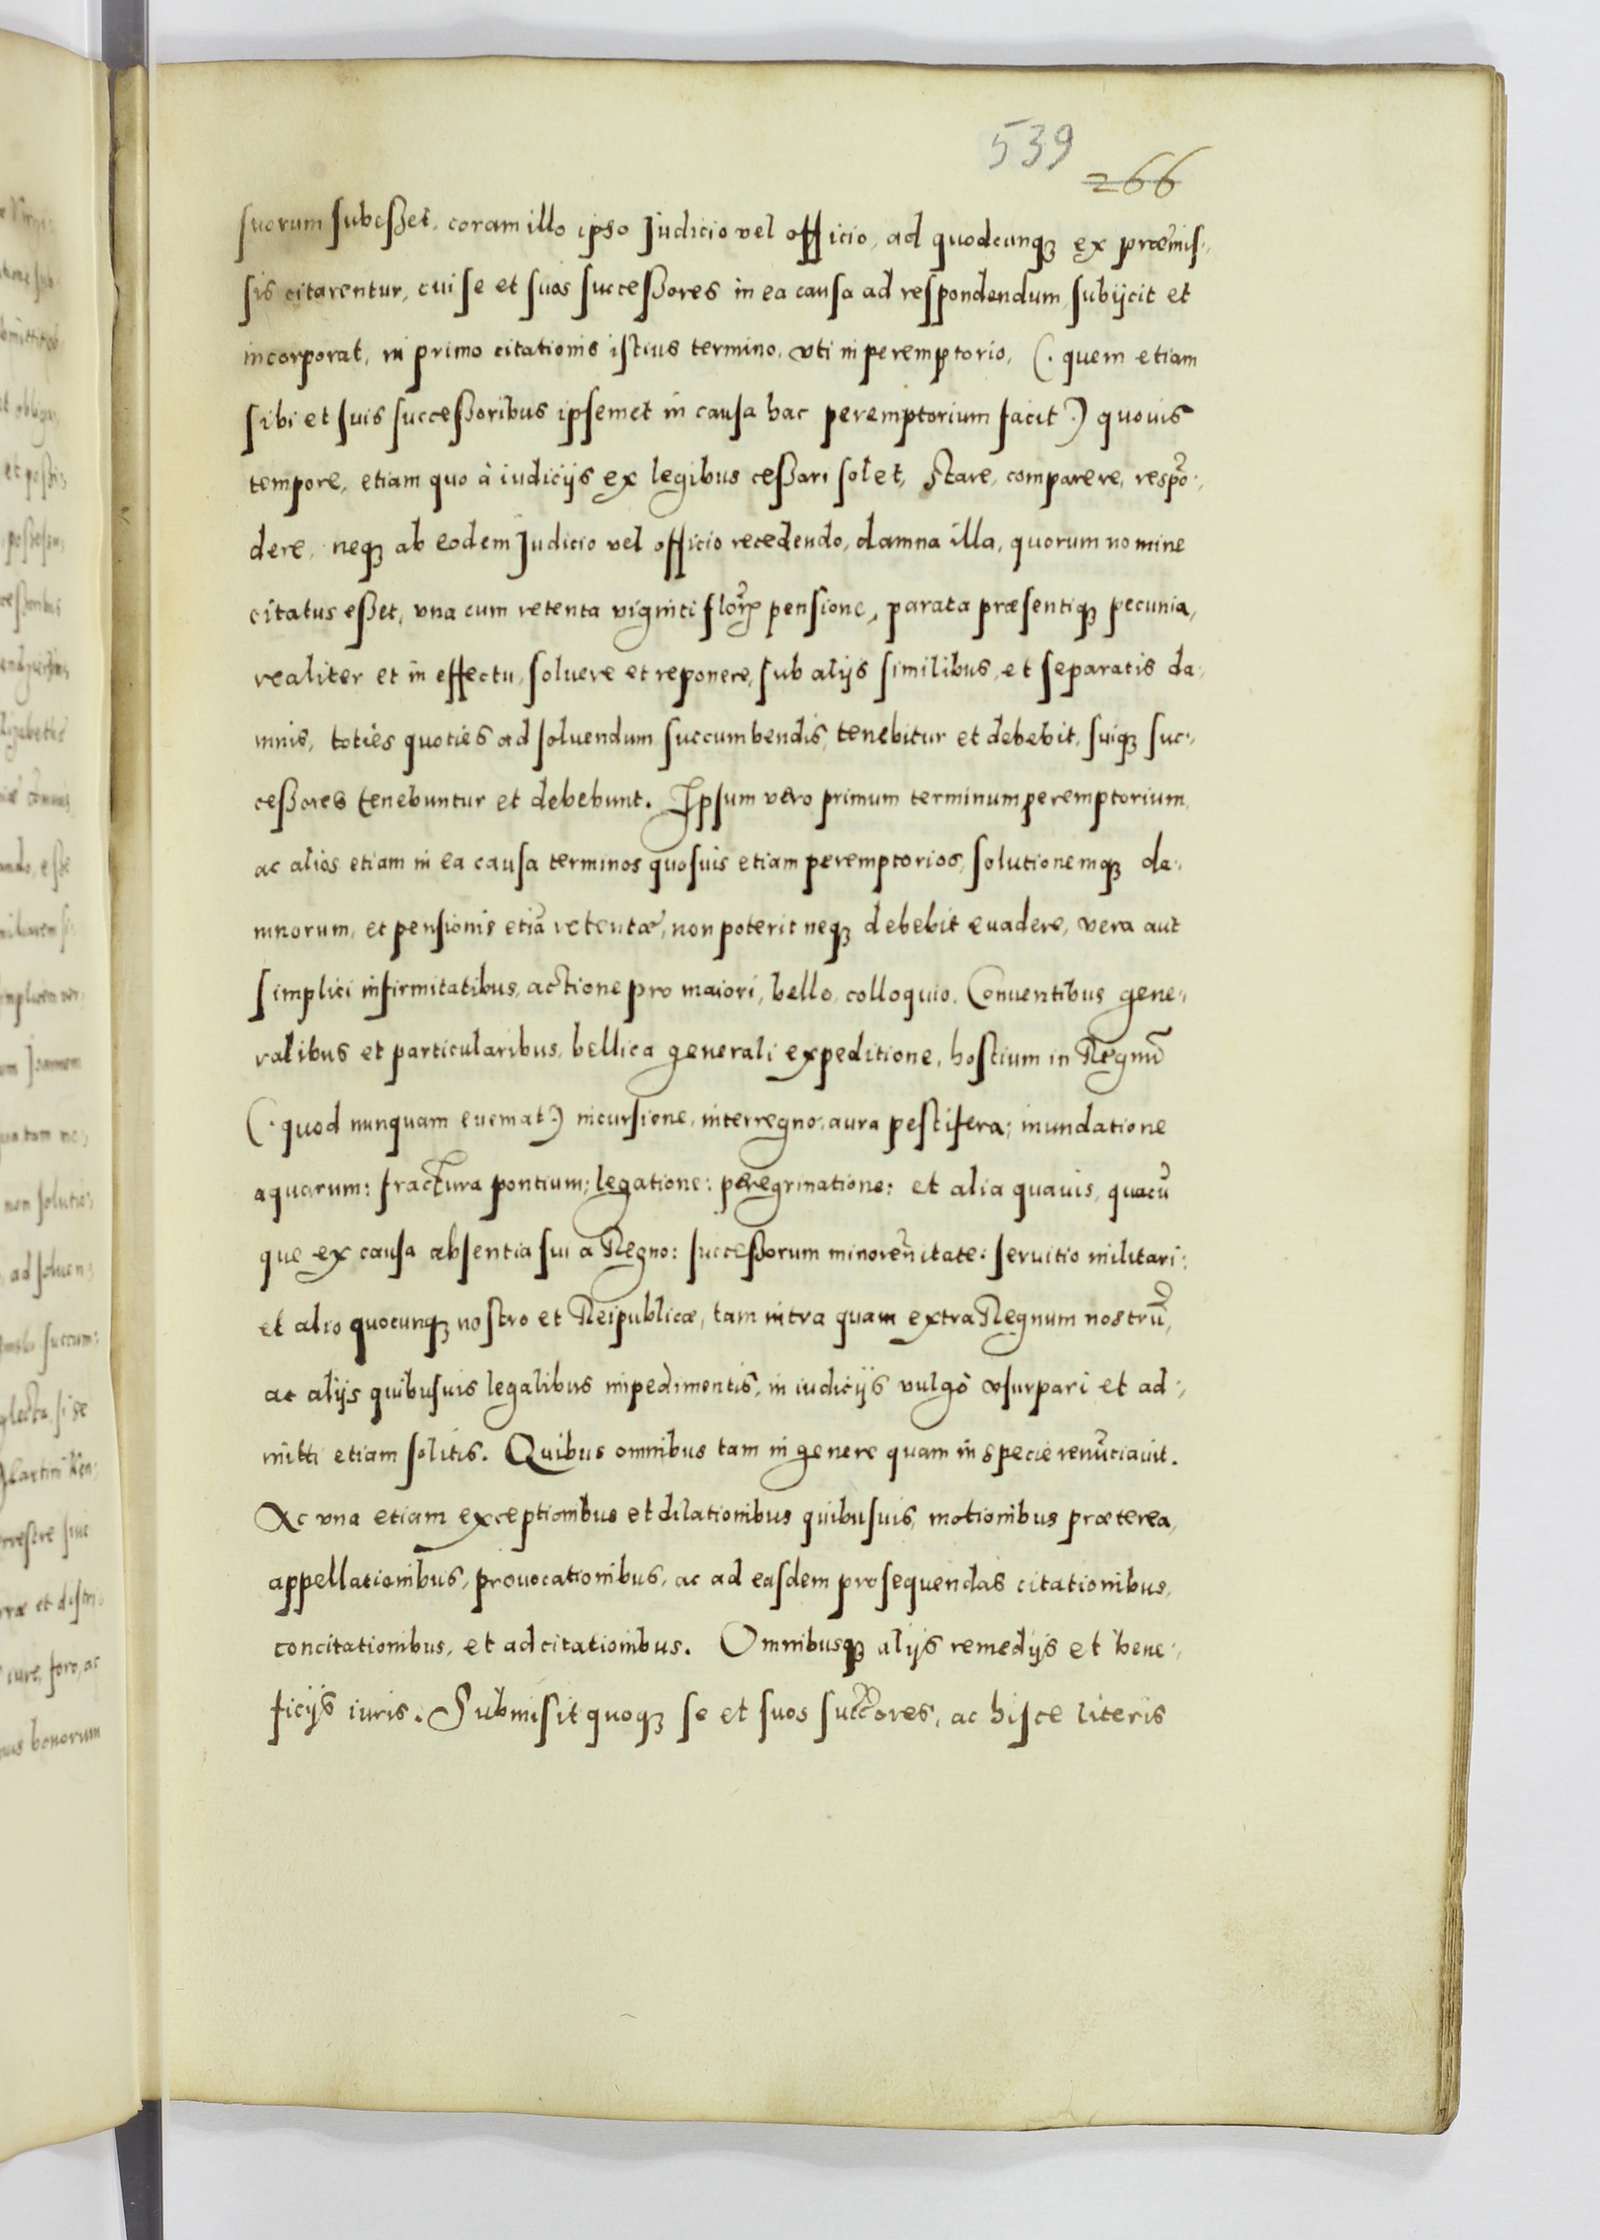 539
266
suorum subesset, coram illo ipso Judicio vel officio, ad quodcunq3 ex præmis:,
sis citarentur, cui se et suos successores in ea causa ad respondendum subijcit et
incorporat, in primo citationis istius termino, vti in peremptorio, (. quem etiam
sibi et suis successoribus ipsemet in causa hac peremptorium facit .) quouis
tempore, etiam quo à iudicijs ex legibus cessari solet, Stare, comparere, respõ:,
dere, neq3 ab eodem Judicio vel officio recedendo, damna illa, quorum nomine
citatus esset, vna cum retenta viginti flor pensione, parata præsentiq3 pecunia,
realiter et in effectu, soluere et reponere, sub alijs similibus, et separatis da:
mnis, toties quoties ad soluendum succumbendis, tenebitur et debebit, suiq3 suc:,
cessores tenebuntur et debebunt. Ipsum vero primum terminum peremptorium,
ac alios etiam in ea causa terminos quosuis etiam peremptorios, solutionemq3 da:
mnorum, et pensionis etiã retentæ, non poterit neq3 debebit euadere, vera aut
simplici infirmitatibus, actione pro maiori, bello, colloquio, Conuentibus gene:,
ralibus et particularibus, bellica generali expeditione, hostium in Regnũ
(. quod nunquam eueniat .) incursione, interregno, aura pestifera; inundatione
aquarum: fractura pontium; legatione: peregrinatione: et alia quauis, quacũ
que ex causa absentia sui a Regno: successorum minorennitate: seruitio militari:
et alio quocunq3 nostro et Reipublicæ, tam intra quam extra Regnum nostrũ,
ac alijs quibusuis legalibus impedimentis, in iudicijs vulgò vsurpari et ad:,
mitti etiam solitis. Quibus omnibus tam in genere quam in specie renũciauit.
Ac vna etiam exceptionibus et dilationibus quibusuis, motionibus præterea,
appellationibus, prouocationibus, ac ad easdem prosequendas citationibus,
concitationibus, et adcitationibus. Omnibusq3 alijs remedijs et bene:,
ficijs iuris. Submisit quoq3 se et suos succores, ac hisce literis